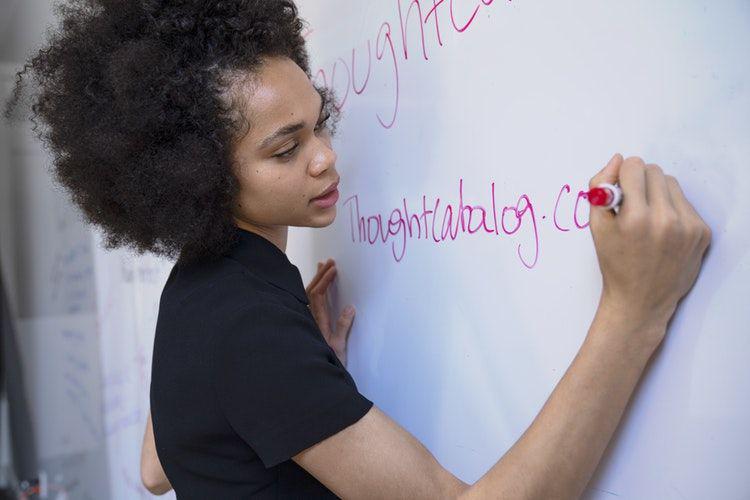 oughtC
ThoughtCatalog.co